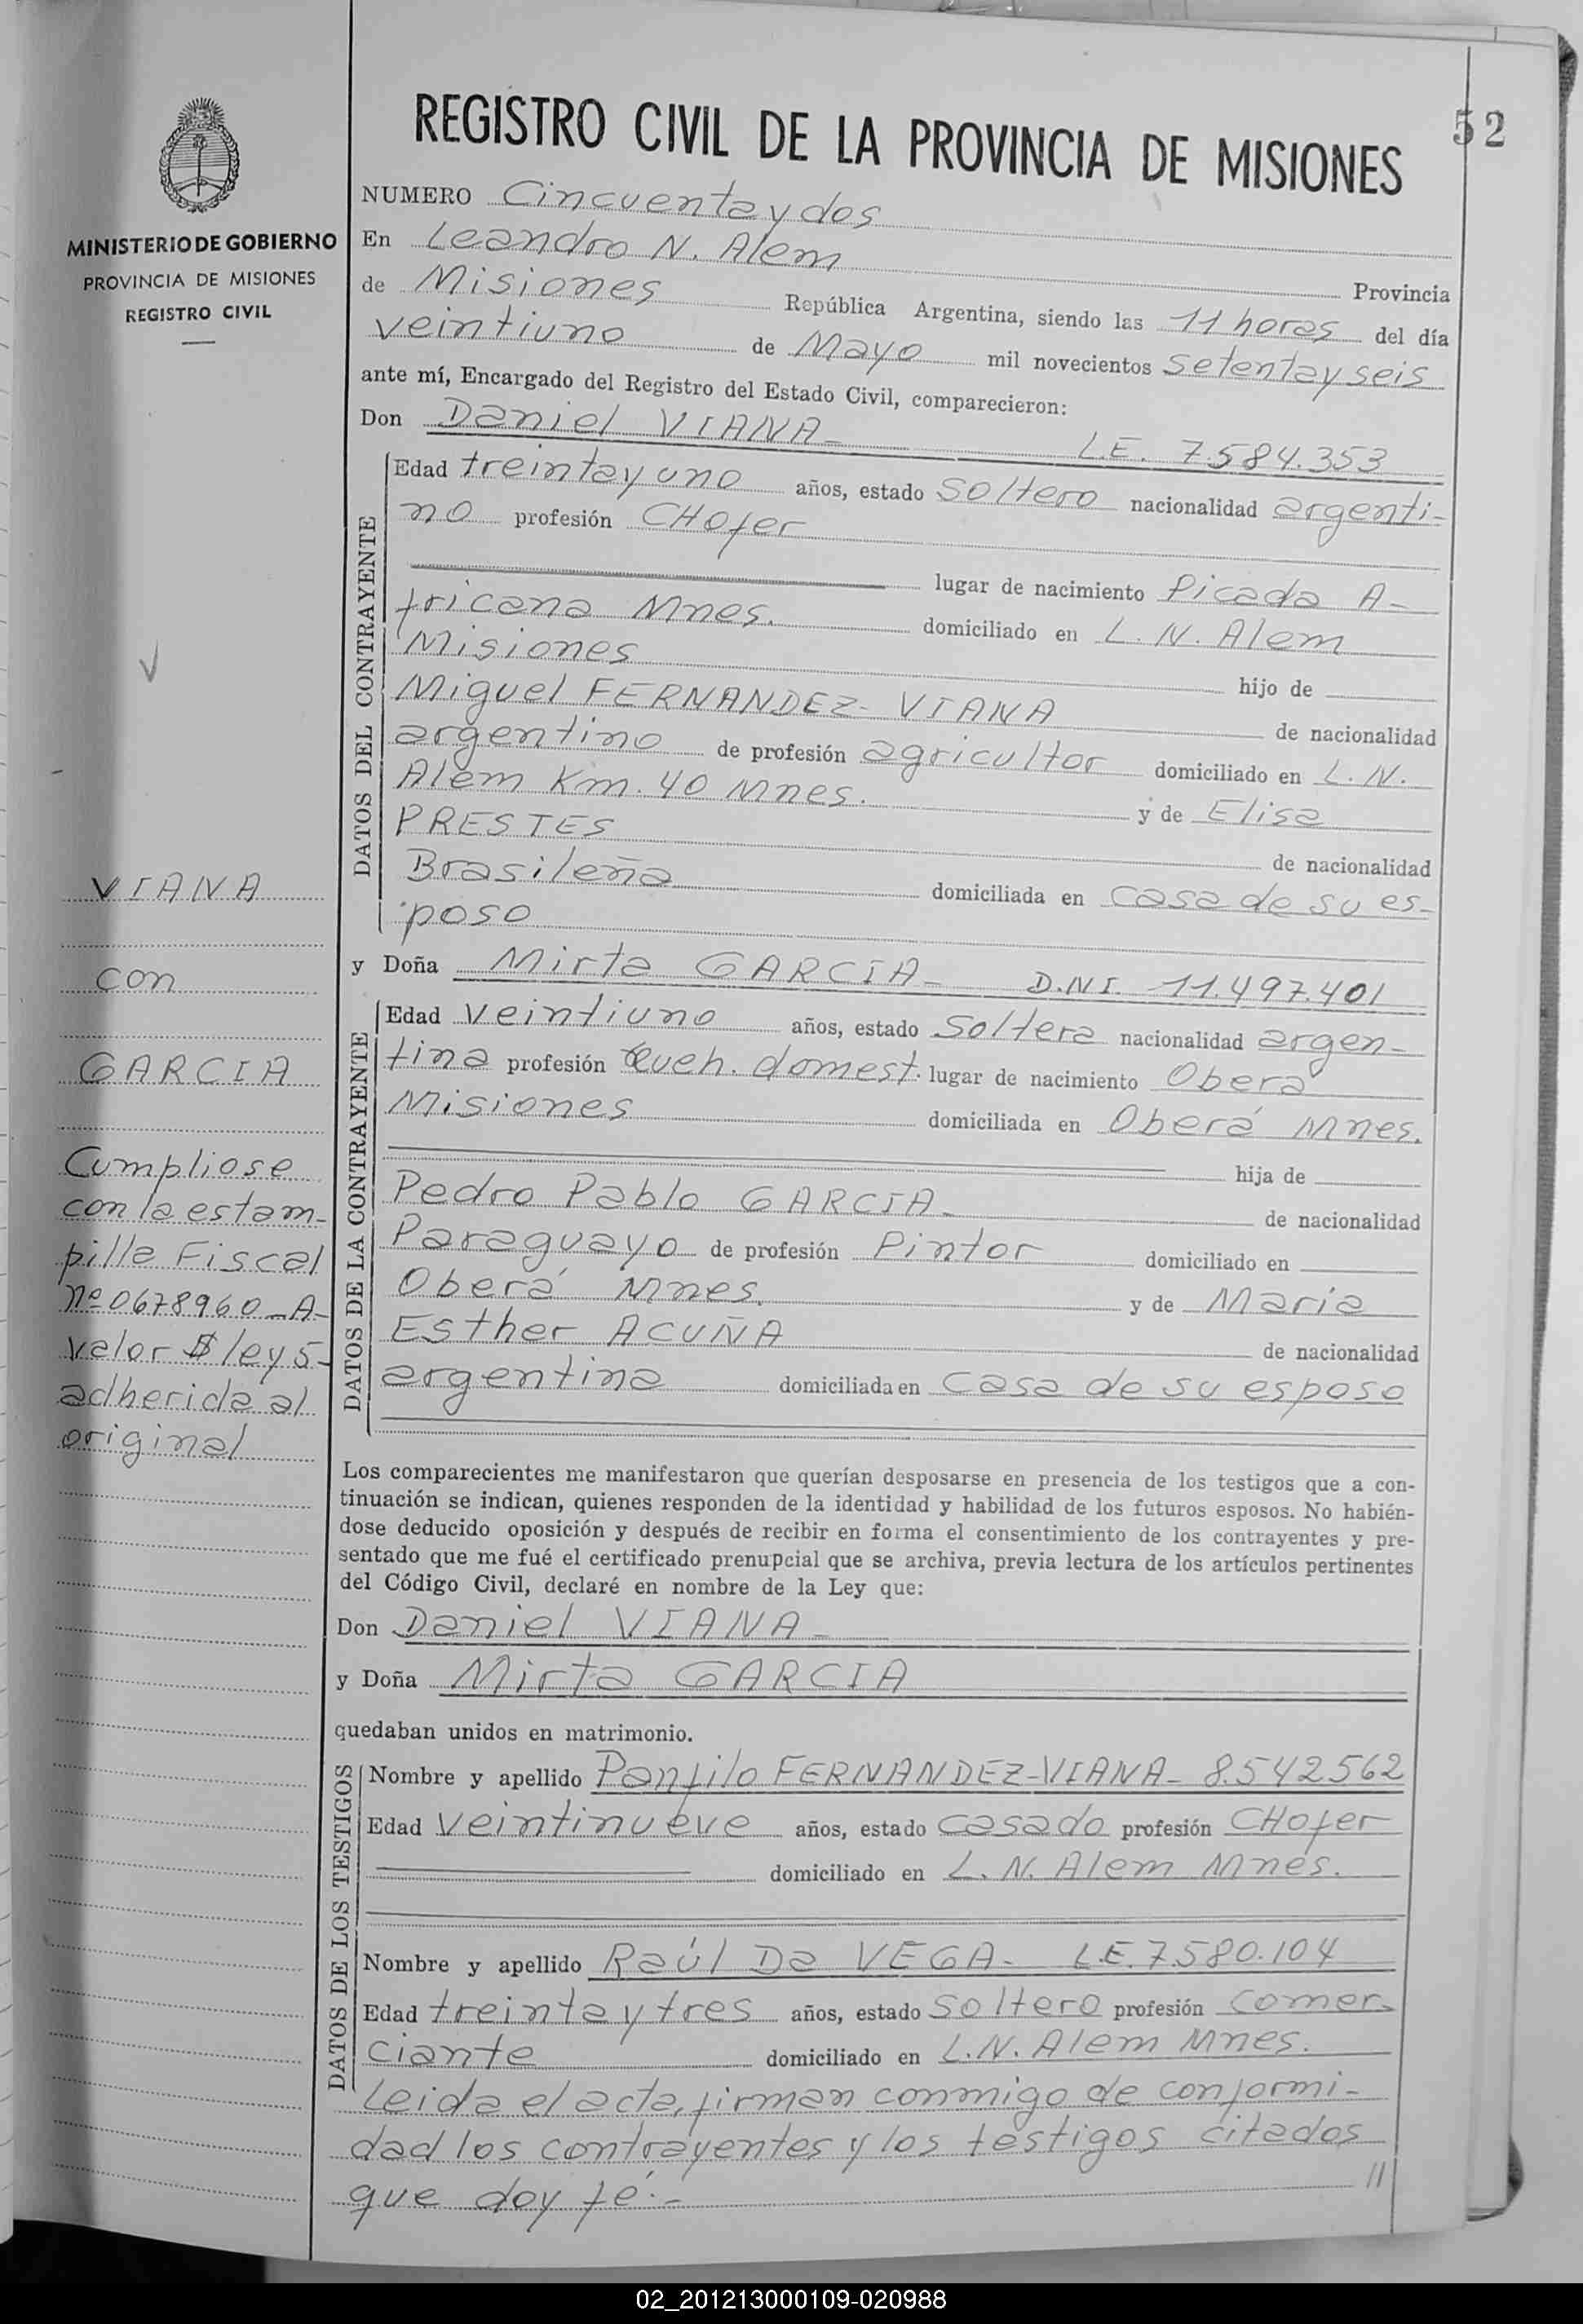 52
REGISTRO CIVIL DE LA PROVINCIA DE MISIONES
MINISTERIO DE GOBIERNO
PROVINCIA DE MISIONES
REGISTRO CIVIL
NUMERO Cincuenta y dos
En Leandro N. Alem Provincia
de Misiones República Argentina, siendo las 11 horas del día
veintiuno de Mayo mil novecientos setenta y seis
ante mí, Encargado del Registro del Estado Civil, comparecieron:
Don Daniel VIANA- L.E. 7.584.353
DATOS DEL CONTRAYENTE
Edad treinta y uno años, estado soltero nacionalidad argenti-
no profesión CHofer
lugar de nacimiento Picada A-
fricana Mnes. domiciliado en L. N. Alem
Misiones hijo de
Miguel FERNANDEZ- VIANA de nacionalidad
argentino de profesión agricultor domiciliado en L. N.
Alem Km. 40 Mnes. y de Elisa
PRESTES de nacionalidad
Brasileña domiciliada en casa de su es-
poso
y Doña Mirta GARCIA- D.N.I. 11.497.401
DATOS DE LA CONTRAYENTE
Edad veintiuno años, estado soltera nacionalidad argen-
tina profesión Queh. domest. lugar de nacimiento Oberá
Misiones domiciliada en Oberá Mnes.
hija de
Pedro Pablo GARCIA- de nacionalidad
Paraguayo de profesión Pintor domiciliado en
Oberá Mnes. y de Maria
Esther ACUÑA de nacionalidad
argentina domiciliada en casa de su esposo
VIANA
con
GARCIA
Cumpliose
con la estam-
pilla Fiscal
nº 0678960-A-
valor $ ley 5-
adherida al
original
Los comparecientes me manifestaron que querían desposarse en presencia de los testigos que a con-
tinuación se indican, quienes responden de la identidad y habilidad de los futuros esposos. No habién-
dose deducido oposición y después de recibir en forma el consentimiento de los contrayentes y pre-
sentado que me fué el certificado prenupcial que se archiva, previa lectura de los artículos pertinentes
del Código Civil, declaré en nombre de la Ley que:
Don Daniel VIANA-
y Doña Mirta GARCIA
quedaban unidos en matrimonio.
DATOS DE LOS TESTIGOS
Nombre y apellido Panfilo FERNANDEZ-VIANA- 8.542562
Edad veintinueve años, estado casado profesión CHofer
domiciliado en L. N. Alem Mnes.
Nombre y apellido Raúl Da VEGA- L.E. 7.580.104
Edad treinta y tres años, estado soltero profesión comer-
ciante domiciliado en L.N. Alem Mnes.
Leida el acta, firman conmigo de conformi-
dad los contrayentes y los testigos citados
que doy fé.- //
02_201213000109-020988